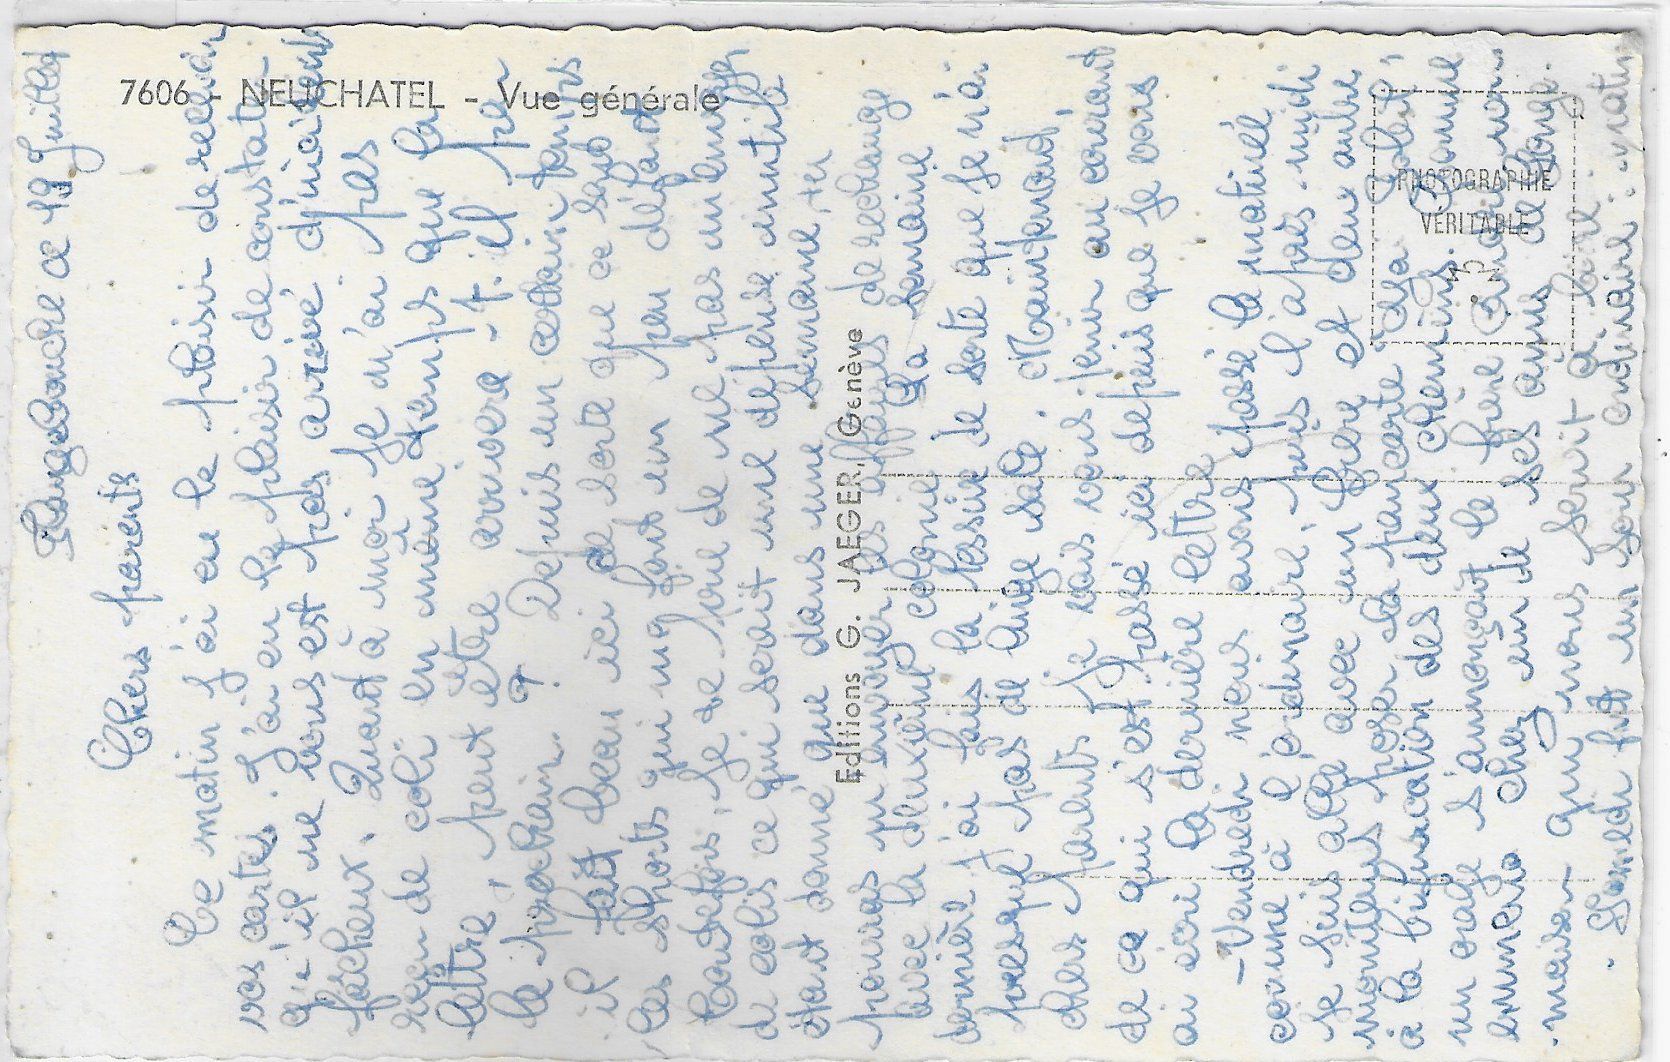 7606 - NEUCHATEL - Vue générale
Editions G. JAEGER, Genève
PHOTOGRAPHIE
VÉRITABLE
ce 19 Juillet
Chers parents
Ce matin j'ai eu le plaisir de
vos cartes. J'ai eu le plaisir de constater
qu'il ne vous est pas arrivé d'incident
fâcheux. Quant à moi je n'ai pas
reçu de coli en même temps que la
lettre, peut être arrivera-t-il
la prochain. Depuis un certain temps
il fait beau ici de sorte que ce sont
les shorts qui me font un peu défaut
Toutefois, je de ne pas
de colis ce qui serait une dépense inutile
étant donné que dans une semaine, tu
pourras m'envoyer les affaires de rechange
avec la deuxième colonie. La semaine
dernière j'ai fais la lessive de sorte que je n'ai
presque pas de linge sale. Maintenant,
chers parents je vais vous tenir au courant
de ce qui s'est passé ici depuis que je vous
ai écri la dernière lettre
- Vendredi nous avons passé la matinée
comme à l'ordinaire, puis l'après-midi
je suis allé avec un frère et deux autre
moniteurs poser la pancarte
à la bifurcation des deux chemins. Comme
un orage s'annonçait le frère
emmena chez un de ses amis de
maison qui nous servit à boire.
. Samedi fut un jour ordinaire : matin